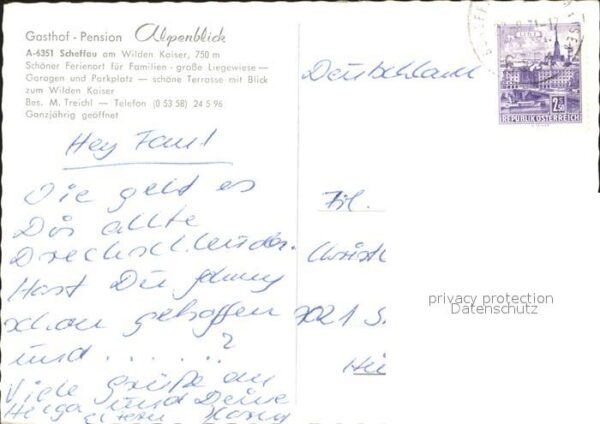 Gasthof - Pension Alpenblick
A-6351 Scheffau am Wilden Kaiser, 750 m
Schöner Ferienort für Familien - große Liegewiese —
Garagen und Parkplatz — schöne Terrasse mit Blick
zum Wilden Kaiser
Bes. M. Treichl — Telefon (0 53 58) 24 5 96
Ganzjährig geöffnet
LINZ
REPUBLIK ÖSTERREICH
Deutschland
Hey
Wie geht es
Dir alte
Dreckschleuder.
Hast Du
schon getroffen
und . . . . . . ?
Viele Grüße an
Helga und Deine
Eltern
Frl.
Christ
privacy protection
Datenschutz